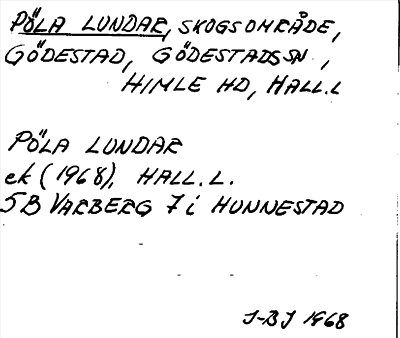 PÖLA LUNDAR, SKOGSOMRÅDE,
GÖDESTAD, GÖDESTADS SN,
HIMLE HD, HALL.L
PÖLA LUNDAR
ek (1968), HALL.L.
5B VARBERG 7 i HUNNESTAD
J-BJ 1968